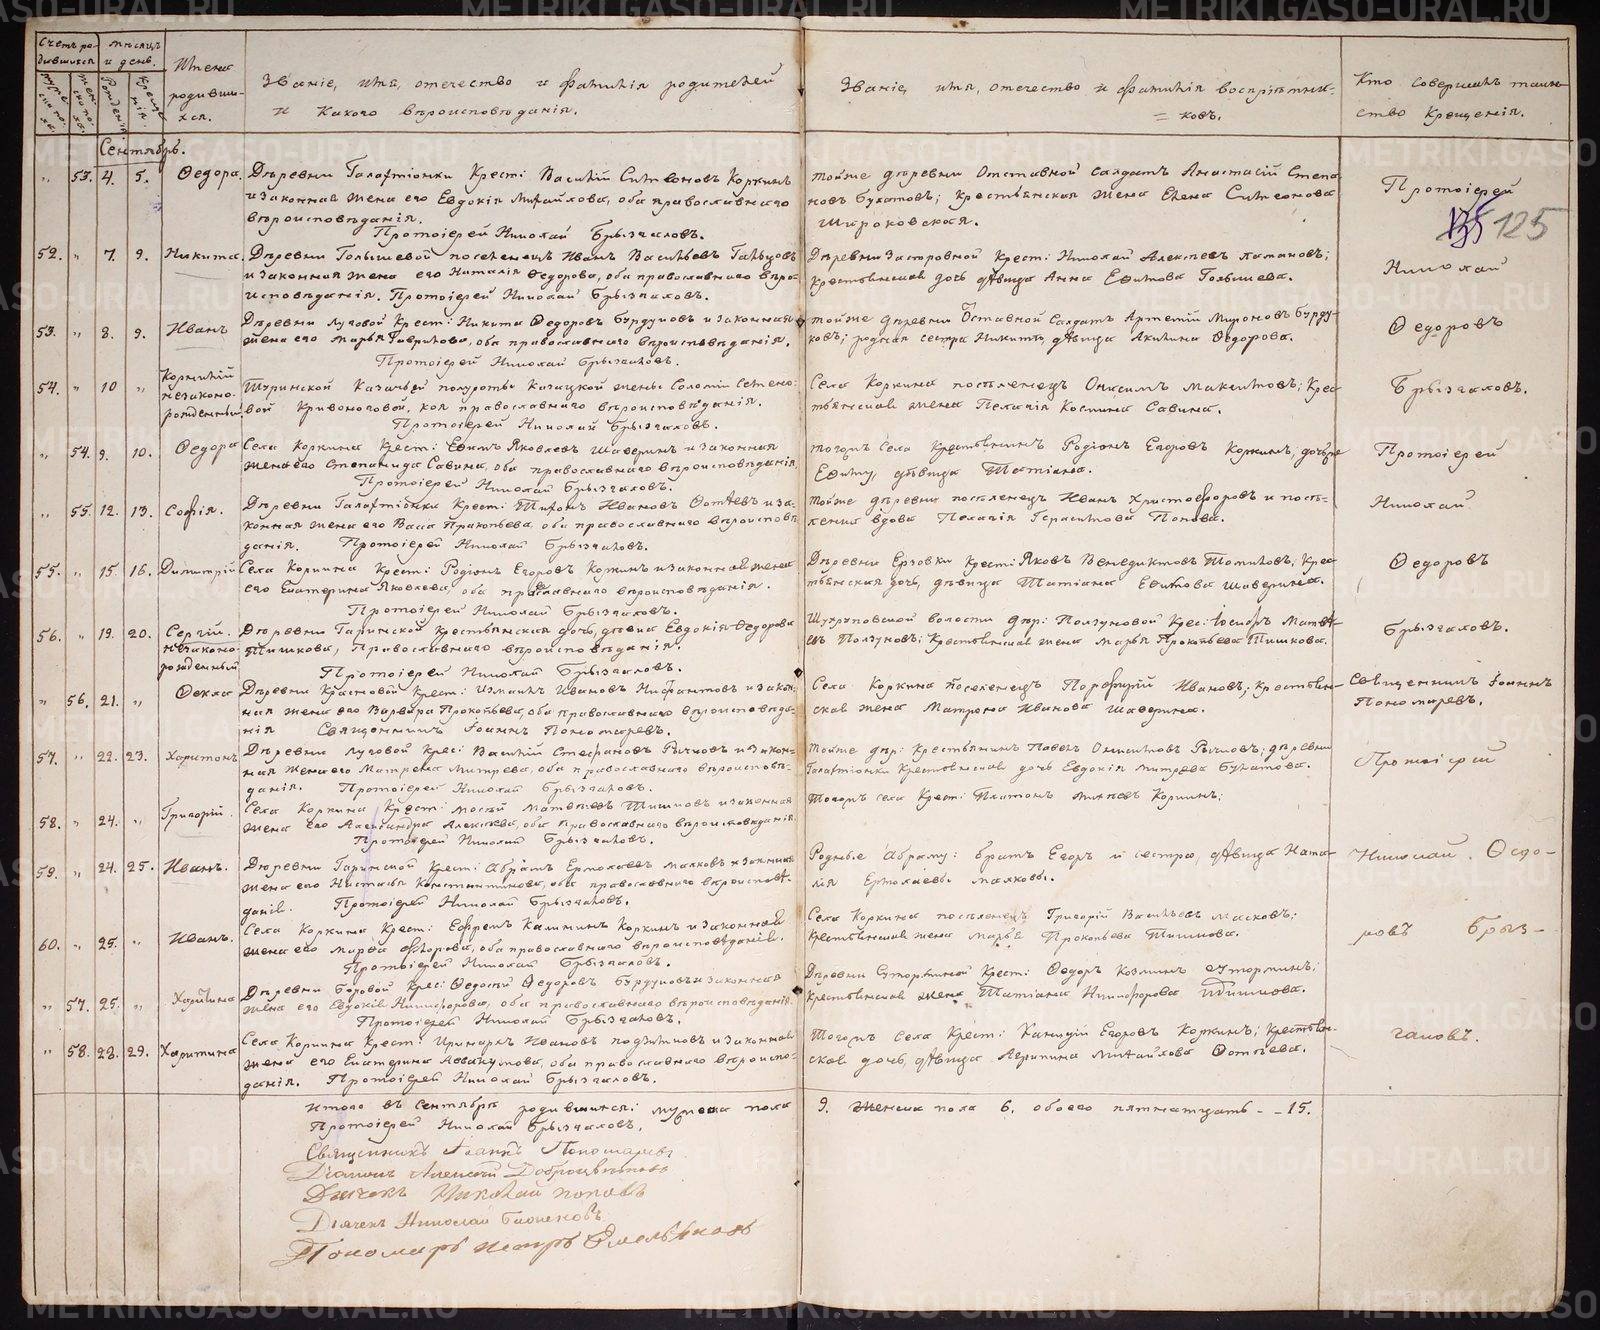 Счетъ ро-
дившихся
Мѣсяцъ
и день.
Имена
родивши-
хся.
Званіе, имя, отечество и фамилія родителей
и какого вѣроисповѣданія.
Званіе, имя, отечество и фамилія воспріемни-
= ковъ.
Кто совершалъ таин-
ство крещенія.
Рожденія.
Креще-
нія.
Сентябрь.
„ 53. 4. 5. Ѳедора. Деревни Галактіонки Крест: Василій Симеоновъ Коркинъ
и законная жена его Евдокія Михайлова, оба православнаго
вѣроисповѣданія.
Протоіерей Николай Брызгаловъ.
тойже деревни Отставной солдатъ Анастасій Степа-
новъ Булатовъ; крестьянская жена Елена Симеонова
Широковская.
Протоіерей
125
52. „ 7. 9. Никита. Деревни Голышевой поселенецъ Иванъ Васильевъ
и законная жена его Наталія Ѳедорова, оба православнаго вѣро
исповѣданія. Протоіерей Николай Брызгаловъ.
Деревни Крест: Николай Алексѣевъ
крестьянская дочь дѣвица Анна Ефимова Голышева.
Николай
53. „ 8. 9. Иванъ Деревни Луговой Крест: Никита Ѳедоровъ Бурдуковъ и законная
жена его Марья Гаврилова, оба православнаго вѣроисповѣданія.
Протоіерей Николай Брызгаловъ.
тойже деревни Оставной Солдатъ Артемій Мироновъ Бурду-
ковъ; родная сестра Никиты, дѣвица Акилина Ѳедорова.
Ѳедоровъ
54. „ 10 „ Корнилій
незаконо-
рожденный
Туринской Казачьей полуроты казацкой жены Соломіи Семено-
вой Кривоноговой, коя православнаго вѣроисповѣданія.
Протоіерей Николай Брызгаловъ.
Села Коркина поселенецъ Онисимъ Максимовъ; крес-
тьянская жена Пелагія Космина Савина.
Брызгаловъ.
„ 54. 9. 10. Ѳедора Села Коркина Крест: Ефимъ Яковлевъ Шаверинъ и законная
жена его Степанида Савина, оба православнаго вѣроисповѣданія
Протоіерей Николай Брызгаловъ.
тогожъ села Крестьянинъ Родіонъ Егоровъ Коркинъ;
Ефиму, дѣвица Татіана.
Протоіерей
„ 55. 12. 13. Софія. Деревни Галактіонки Крест: Тихонъ Ивановъ Фотѣевъ и за-
конная жена его Васса Прокопьева, оба православнаго вѣроисповѣ
данія. Протоіерей Николай Брызгаловъ.
тойже деревни поселенецъ Иванъ Христофоровъ и посе-
ленка вдова Пелагія Герасимова Попова.
Николай
55. „ 15. 16. Димитрій Села Коркина Крест: Родіонъ Егоровъ Коркинъ и законная жена
его Екатерина Яковлева, оба православнаго вѣроисповѣданія.
Протоіерей Николай Брызгаловъ.
Деревни Ерзовки Крест: Яковъ Венедиктовъ Томиловъ; крес-
тьянская дочь, дѣвица Татіана Ефимова Шаверина.
Ѳедоровъ
56. „ 19. 20. Сергій.
незаконо
рожденный
Деревни Гаринской крестьянская дочь, дѣвица Евдокія Ѳедорова
Тишкова, Православнаго вѣроисповѣданія.
Протоіерей Николай Брызгаловъ.
волости дер: Ползуновой Крес: Іосифъ Матвѣ-
евъ Ползуновъ; Крестьянская жена Марья Прокопьева Тишкова.
Брызгаловъ.
„ 56. 21. „ Ѳекла Деревни Красновой Крест: Измаилъ Ивановъ Нифантовъ и закон-
ная жена его Варвара Прокопьева, оба православнаго вѣроисповѣда-
нія Священникъ Іоаннъ Пономаревъ.
Села Коркина поселенецъ Порфирій Ивановъ; крестьян-
ская жена Матрона Иванова Шаверина.
Священникъ Іоаннъ
Пономаревъ.
57. „ 22. 23. Харитонъ Деревни Луговой Крес: Василій Стефановъ Рычковъ и закон-
ная жена его Матрена Митрева, оба православнаго вѣроисповѣ-
данія. Протоіерей Николай Брызгаловъ.
тойже дер: Крестьянинъ Павелъ Онисимовъ Рычковъ; деревни
Галактіонки крестьянская дочь Евдокія Митрева Булатова.
Протоіерей
58. „ 24. „ Григорій. Села Коркина Крест: Мосей Матвѣевъ Тишковъ и законная
жена его Александра Алексѣева, оба православнаго вѣроисповѣданія.
Протоіерей Николай Брызгаловъ.
Тогожъ села Крест: Платонъ Коркинъ;
59. „ 24. 25. Иванъ. Деревни Гаринской Крест: Абрамъ Ермолаевъ Малковъ и законная
жена его Настасья Константинова, оба православнаго вѣроисповѣ-
данія. Протоіерей Николай Брызгаловъ.
Родные Абраму: братъ Егоръ и сестра, дѣвица Ната-
лія Ермолаевы Малковы.
Николай Ѳедо-
60. „ 25. „ Иванъ. Села Коркина Крест: Ефремъ Калининъ Коркинъ и законная
жена его Марѳа Ѳедорова, оба православнаго вѣроисповѣданія.
Протоіерей Николай Брызгаловъ.
Села Коркина поселенецъ Григорій Васильевъ Масковъ;
Крестьянская жена Марья Прокопьева Тишкова.
ровъ Брыз-
„ 57. 25. „ Харитина Деревни Боровой Крес: Ѳедосій Ѳедоровъ Бурдуковъ и законная
жена его Евдокія Никифорова, оба православнаго вѣроисповѣданія.
Протоіерей Николай Брызгаловъ.
Деревни Крест: Ѳедоръ Козминъ
крестьянская жена Татіана Никифорова
„ 58. 28. 29. Харитина Села Коркина Крест: Ивановъ и законная
жена его Екатерина Авакумова, оба православнаго вѣроиспо-
данія. Протоіерей Николай Брызгаловъ.
Тогожъ села Крест: Егоровъ Коркинъ; крестьян-
ская дочь, дѣвица Агрипина Михайлова Фотѣева.
галовъ.
Итого въ Сентябрѣ родившихся: мужеска пола
9. женска пола 6. обоего пятнатцать - - 15.
Протоіерей Николай Брызгаловъ.
Священникъ Іоаннъ Пономаревъ
Діаконъ Алексѣй
Дьячекъ Николай Поповъ
Дьячекъ Николай
Пономарь Петръ Емельяновъ
METRIKI.GASO-URAL.RU